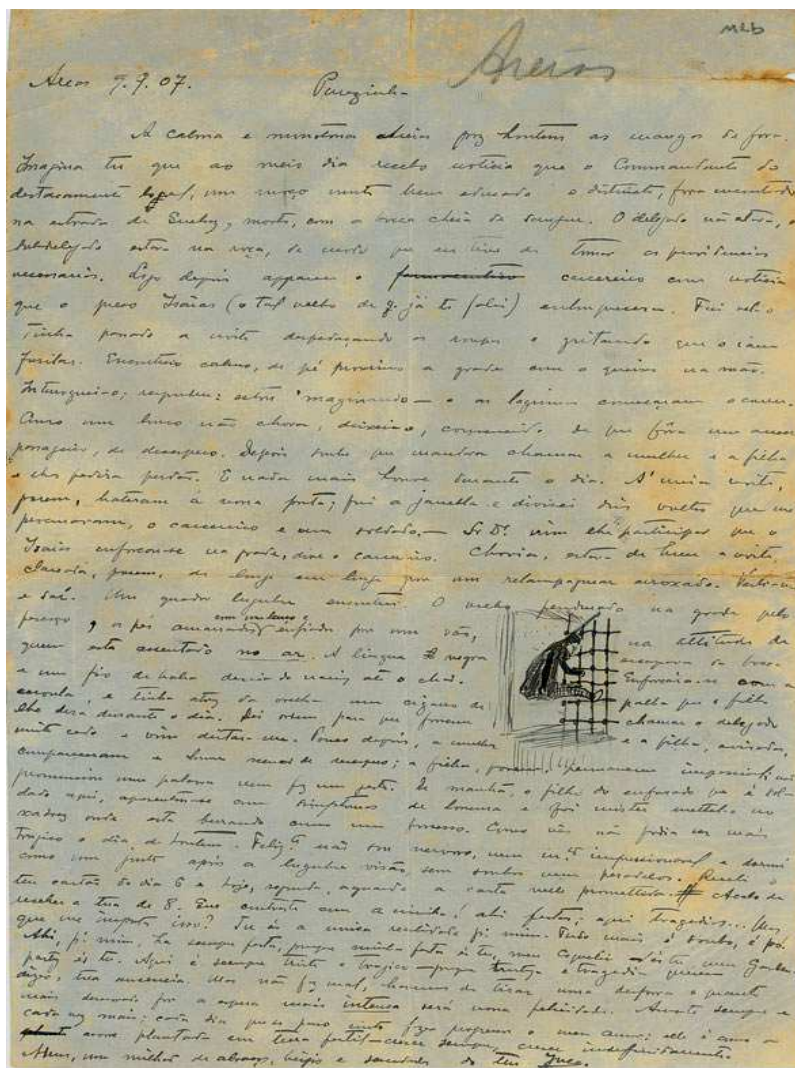 MLb
Areias
Areas 9.9.07.
Purezinha
A calma e monotona Areias poz hontem as mangas de fora.
Imagina tu que ao meio dia recebo noticia que o Commandante do
destacamento local, um moço muito bem educado e distincto, fora encontrado
na entrada de morto, com a boca cheia de sangue. O delegado não estava, o
subdelegado estava na roça, de modo que eu tive de tomar as providencias
necessarias. Logo depois apparece o carcereiro com noticia
que o preso Isaias (o tal velho de q. já te falei) enlouquecera. Fui vel-o
Tinha passado a noite despedaçando as roupas e gritando que o iam
fusilar. Encontrei-o calmo, de pé proximo a grade com o queixo na mão.
Interroguei-o; respondeu: estou "maginando — e as lagrimas começaram a correr.
Como um louco não chora, deixei-o, convencido de que fôra um accesso
passageiro, de desespero. Depois soube que mandara chamar a mulher e a filha
e lhes pedira perdão. E nada mais houve durante o dia. A' meia noite,
porem, bateram á nossa porta; fui a janella e divisei dois vultos que me
procuravam, o carcereiro e um soldado, — Sr Dr. vim lhe participar que o
Isaias enforcou-se na grade, disse o carcereiro. Chovia, estava de treva a noite,
clareada, porem, de longe em longe por um relampaguear arroxado. Vesti-me
e sai. Um quadro lugubre encontrei. O velho pendurado na grade pelo
pescoço, e os pés amarrados e enfiados por um vão, na attitude de
quem está assentado no ar. A lingua negra
e um fio de baba descia do nariz até o chão. Enforcara-se com a
ceroula, e tinha atraz da orelha um cigarro de palha que o filho
lhe dera durante o dia. Dei ordem para que fossem chamar o delegado
muito cedo e vim deitar-me. Pouco depois, a mulher e a filha, avisadas,
compareceram e houve scenas de desespero; a filha, porem, permaneceu impassivel, não
pronunciou uma palavra nem fez um gesto. De manhã, o filho do enforcado que é sol-
dado aqui, apresentou-se com symptomas de loucura e foi mister mettel-o no
xadrez onde está berrando como um possesso. Como vês não podia ser mais
tragico o dia de hontem. Felizte não sou nervoso, nem mto impressionavel e dormi
como um justo após a lugubre visão, sem sonhos nem pesadelos. Recebi o
teu cartão do dia 6 e hoje, segunda, aguardo a carta nelle promettida. Acabo de
receber a tua de 8. Que contraste com a minha! ahi festas; aqui tragedias... Mas
que me importa isso? Tu és a unica realidade pa mim. Tudo mais é sonho, é pó.
Ahi, pa mim, ha sempre festa, porque minha festa és tu,
party és tu. Aqui é sempre triste e tragico — porque tristeza e tragedia querem
dizer, tua ausencia. Mas não faz mal, havemos de tirar uma desforra e quanto
mais demorada for a espera mais intensa será nossa felicidade. Amo-te sempre e
cada vez mais: cada dia que passa faz progresso o meu amor: elle é como a
arvore plantada em terra fertil — crescer sempre, crescer indefinidamente.
Adeus, um milhão de abraços, beijos e saudades do teu Juca.